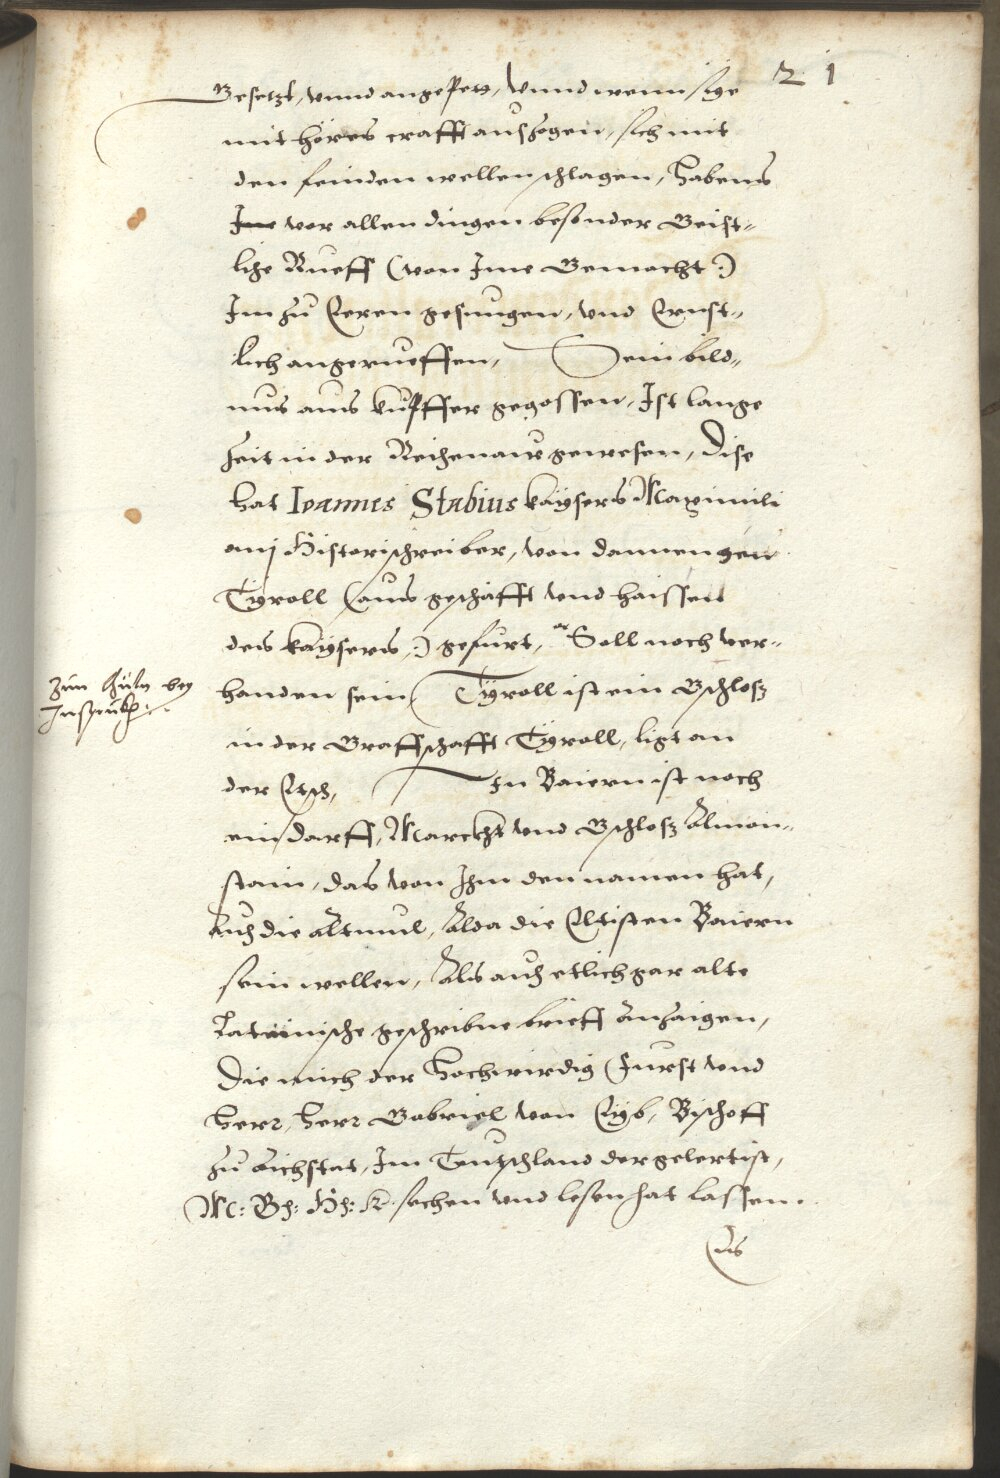 21
Besetzt, vnnd angesetzt, vnnd wenn sye
mit höres crafft auszogen, sich mit
den feinden wellen schlagen, Habens
Ime vor allen dingen besonder Geist-
liche Rueff (von Ime Gemacht :)
Im zu Eeren gesungen, vnd Ernst-
lich angerueffen, Sein bild-
nus aus kupffer gegossen, Ist lange
zeit in der Reichenaw gewesen, Dise
hat Ioannes Stabius kaysers Maximili
ani Historischreiber, von dannen gen
Tyroll (aus geschäfft vnd haissen
des kaysers :) gefurt, Soll noch ver-
handen sein Tyroll ist ein Gschlosz
zum bey
Insprukh
in der Graffschafft Tyroll, ligt an
der Etsch, In Baiern ist noch
ein darff, Marckht vnd Gschlosz Alman-
stain, das von Ihm den namen hat,
Auch die Altmul, Alda die Eltisten Baiern
sein wellen, Als auch etlich gar alte
Lateinische geschribne brieff anzaigen,
Die mich der Hochwirdig Furst vnd
Herr, Herr Gabriel von Eyb, Bischoff
zu Aichstat, Im Teutschland der gelertist,
M: G: H: sechen vnd lesen hat lassen.
Als